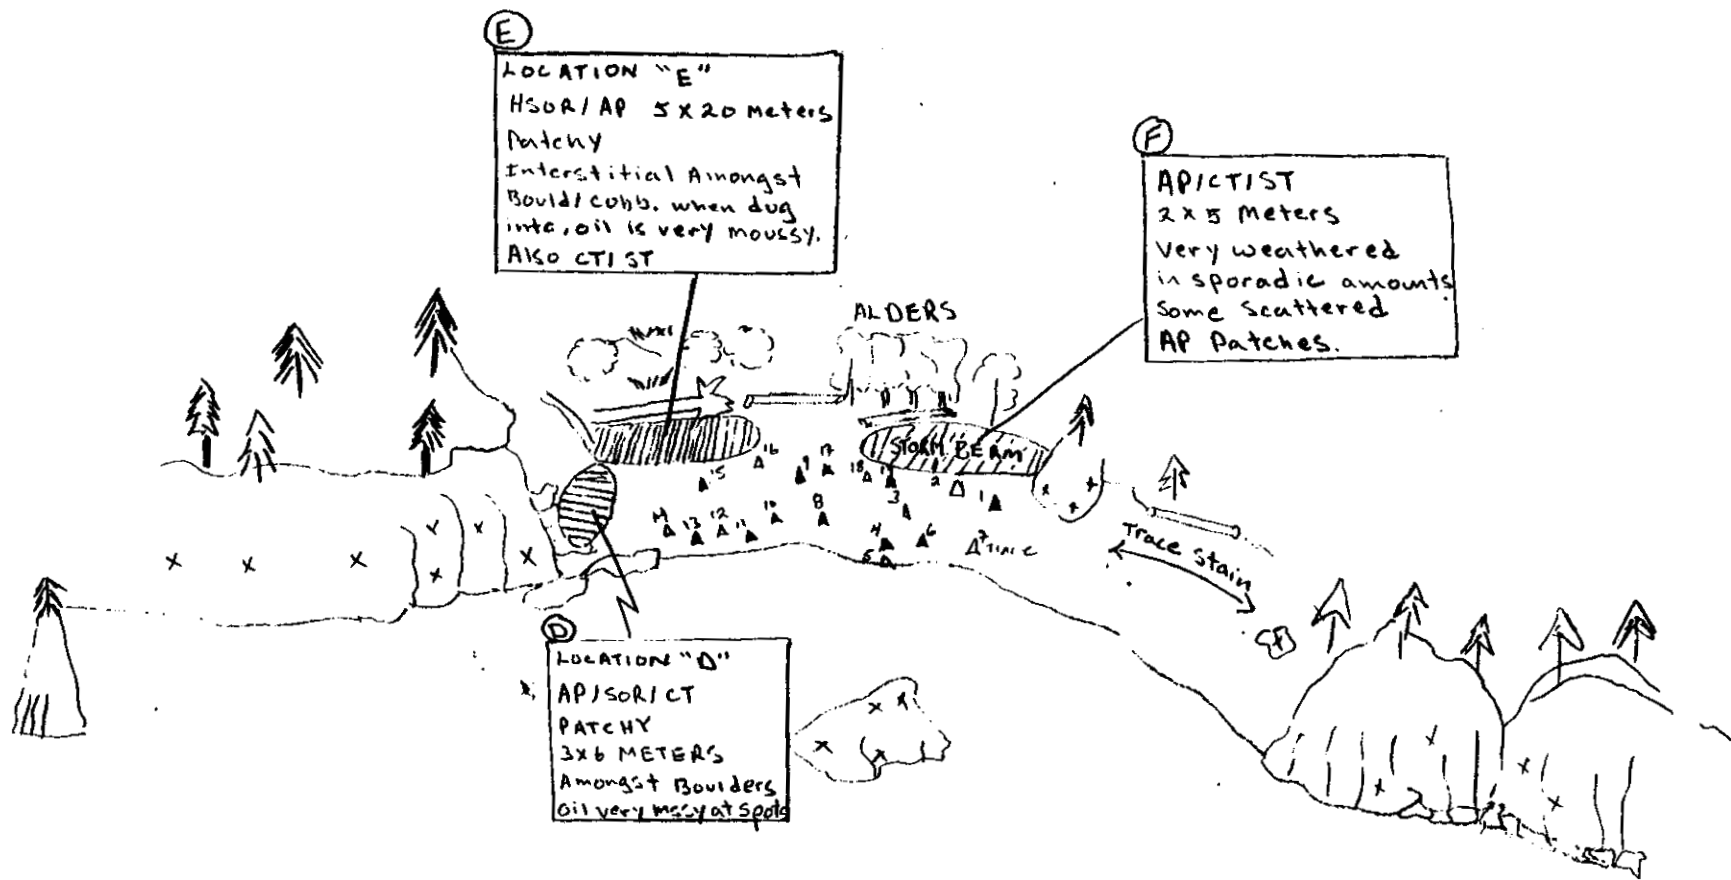 E
LOCATION "E"
HSOR/AP 5 X 20 Meters
Patchy
Interstitial Amongst
Bould/cobb. when dug
into, oil is very moussy.
Also CT/ST
F
AP/CT/ST
2 x 5 Meters
Very weathered
in sporadic amounts
Some scattered
AP Patches.
ALDERS
STORM BERM
16
15
9
17
18
2
1
3
14
13
12
11
10
8
4
5
6
7
Trace Stain
D
LOCATION "D"
AP/SOR/CT
PATCHY
3x6 METERS
Amongst Boulders
oil very mssy at spots